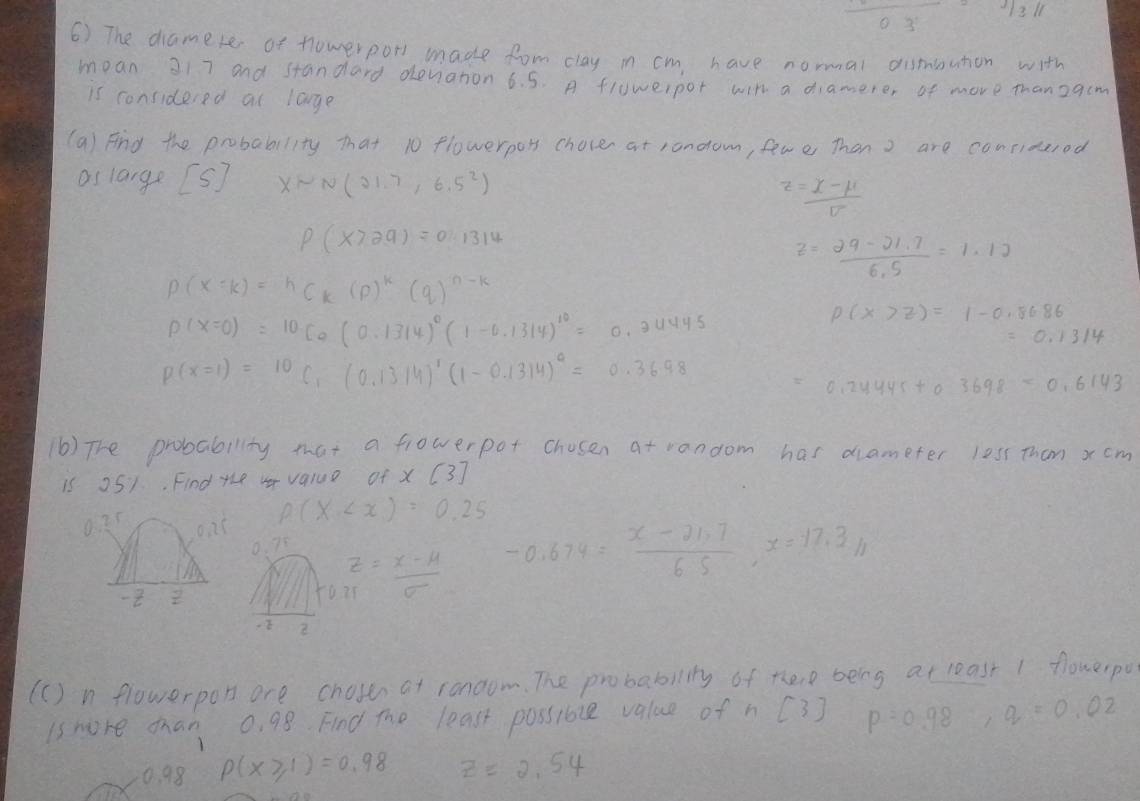 0.3
6) The diameter of flowerpots made from clay in cm, have normal distribution with
mean 21.7 and standard deviation 6.5. A flowerpot with a diameter of more than 29cm
is considered as large
(a) Find the probability that 10 flowerpots chosen at random, fewer than 2 are considered
as large [5] X~N(21.7, 6.5²) z = x-μ/σ
P(X>29) = 0.1314 z = 29-21.7/6.5 = 1.12
P(X=k) = ⁿCₖ (p)ᵏ (q)ⁿ⁻ᵏ P(X>z) = 1-0.8686
P(X=0) = ¹⁰C₀ (0.1314)⁰ (1-0.1314)¹⁰ = 0.24445 = 0.1314
P(X=1) = ¹⁰C₁ (0.1314)¹ (1-0.1314)⁹ = 0.3698 = 0.24445+0.3698 = 0.6143
(b) The probability that a flowerpot chosen at random has diameter less than x cm
is 25%. Find the value of x [3]
0.25 0.25 P(X<x) = 0.25
0.75 z = x-μ/σ -0.674 = x-21.7/6.5, x = 17.3//
0.25
-z z -z z
(c) n flowerpots are chosen at random. The probability of there being at least 1 flowerpo
is more than 0.98. Find the least possible value of n [3] p=0.98, q=0.02
0.98 P(X≥1)=0.98 z = 2.54